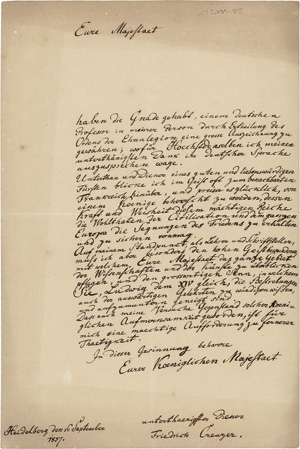 Eure Majestaet
haben die Gnade gehabt, einem deutschen
Professor in meiner Person durch Ertheilung des
Ordens der Ehrenlegion eine grosse Auszeichnung zu
gewähren; wofür Höchstdenselben ich meinen
unterthänigsten Dank in deutscher Sprache
auszusprechen wage.
Unterthan und Diener eines guten und liebenswürdigen
Fürsten blicke ich im Geist auf zum benachbarten
Frankreich hinüber, und preise es glücklich, von
einem Koenige beherrscht zu werden, dessen
Kraft und Weisheit dem mächtigen Reiche
die Wohlthaten der Civilisation und dem ganzen
Europa die Segnungen des Friedens zu erhalten
und zu sichern vermag.
Auf meinem Standpunct als Lehrer und Schriftsteller,
muss ich aber besonders den hohen
mit welchem Eure Majestaet das ganze Gebiet
der Wissenschaften und der Künste zu
pflegen, und den grossartigen Sinn, in welchem
Sie, Ludwig dem XIV gleich, die Bestrebungen
auch der auswärtigen Gelehrten zu würdigen wissen,
und aufzumuntern geneigt sind.
Dass auch meine Versuche Gegenstand solcher Koenig-
lichen Aufmerksamkeit geworden, ist für
mich eine maechtige Aufforderung zu fernerer
Thaetigkeit.
In dieser Gesinnung beharre
Eurer Koeniglichen Majestaet
unterthaenigster Diener
Friedrich Creuzer.
Heidelberg den 16 September
1837.